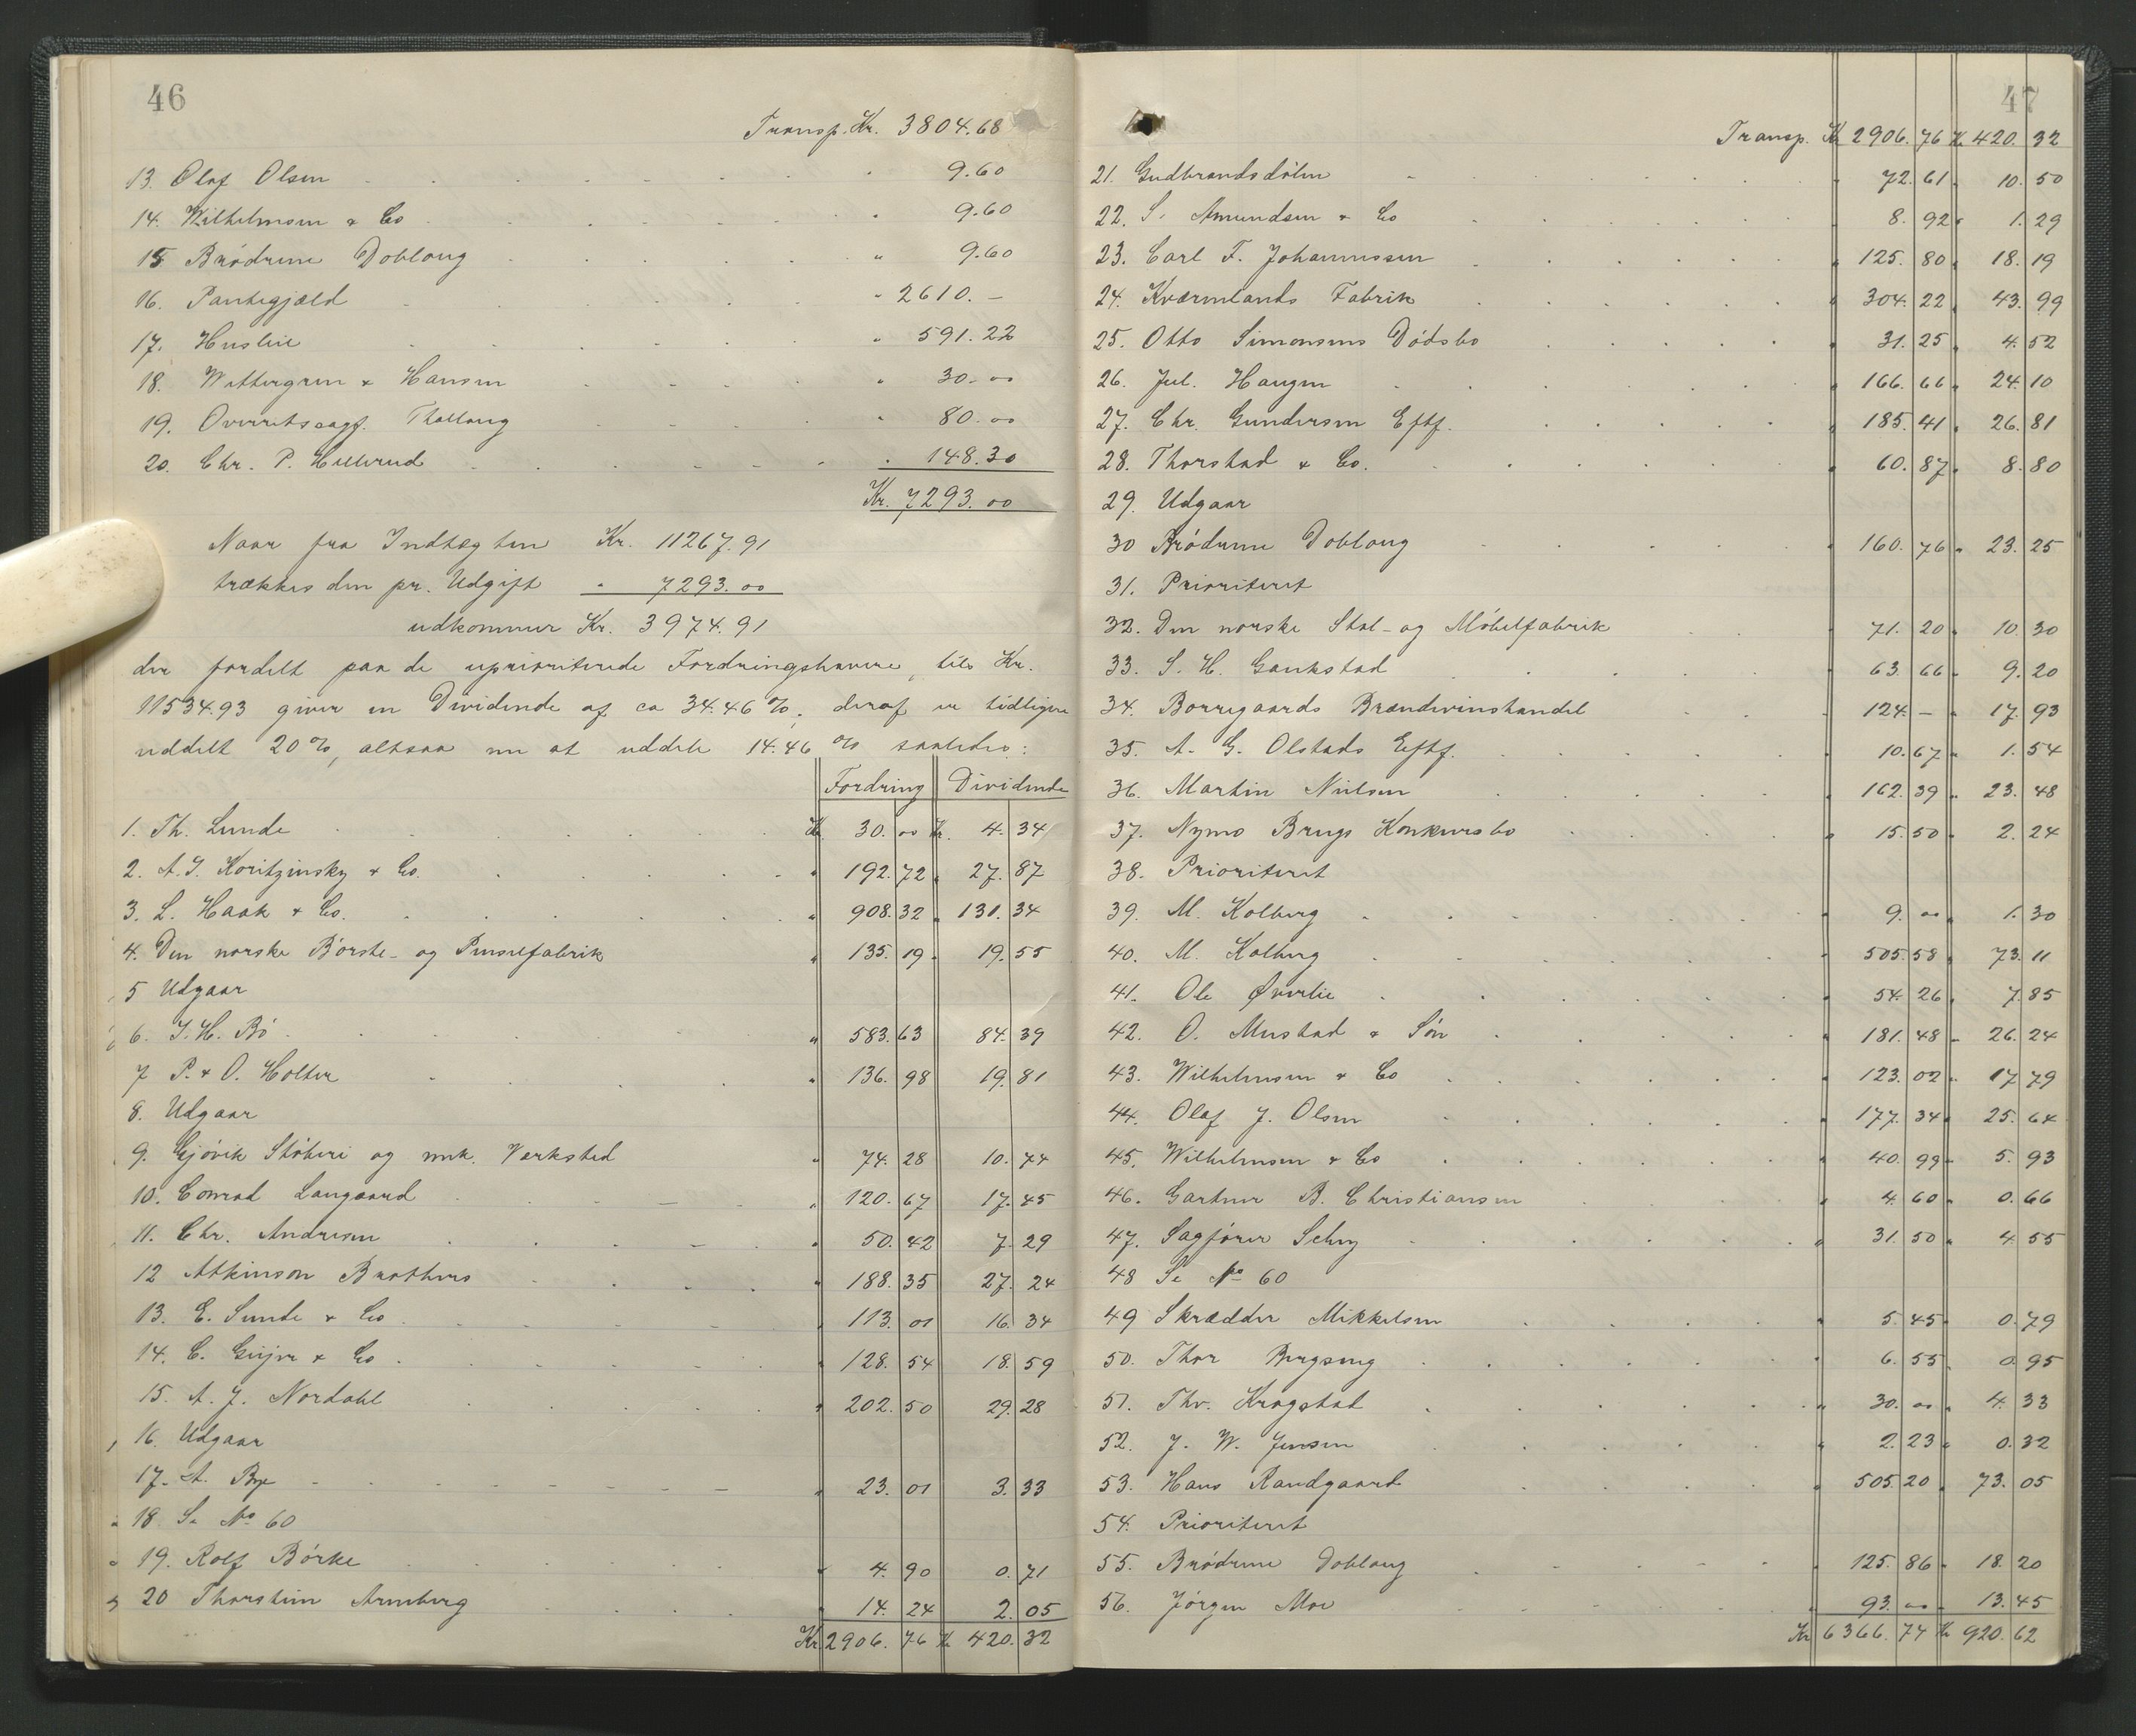 46
Transp. Kr. 3804.68
13. Olaf Olsen " 9.60
14. Wilhelmsen & Co " 9.60
15 Brødrene Doblong " 9.60
16. Pantegjæld " 2610. –
17. Husleie " 591.22
18. Wettergren & Hansen " 30.00
19. Overretssagf. Thallaug " 80.00
20. Chr. P. Hillerud " 148.30
Kr. 7293.00
Naar fra Indtægten Kr. 11267.91
trækkes den pr. Udgift " 7293.00
udkommer Kr. 3974.91
der fordelt paa de uprioriterede Fordringshavere, tils Kr.
11534.93 giver en Dividende af ca 34.46 %, deraf er tidligere
uddelt 20 %, altsaa nu at uddele 14.46 % saaledes:
Fordring Dividende
1. Th. Lunde Kr. 30.00 Kr. 4.34
2. A.I. Koritzinsky & Co. " 192.72 " 27.87
3. L. Haak & Co. " 908.32 " 131.34
4. Den norske Børste- og Penselfabrik " 135.19 " 19.55
5 Udgaar
6. I.H. Bø " 583.63 84.39
7 P. & O. Holter " 136.98 19.81
8. Udgaar
9. Gjøvik Støberi og mek. Verksted " 74.28 10.74
10. Conrad Langaard " 120.67 17.45
11. Chr. Andresen " 50.42 7.29
12 Atkinson Brothers " 188.35 27.24
13. E. Sunde & Co " 113.01 16.34
14. C. Geijer & Co. " 128.54 18.59
15. A. J. Nordahl " 202.50 29.28
16. Udgaar
17. A. Bye " 23.01 3.33
18. Se No 60
19. Rolf Børke " 4.90 0.71
20 Thorstein Arneberg " 14.24 2.05
Kr. 2906.76 Kr 420.32
47
Transp. Kr 2906.76 Kr 420.32
21. Gudbrandsdølen " 72.61 " 10.50
22. S. Amundsen & Co " 8.92 " 1.29
23. Carl F. Johannessen " 125.80 " 18.19
24. Kværnlands Fabrik " 304.22 " 43.99
25. Otto Simonsens Dødsbo " 31.25 " 4.52
26. Jul. Haugen " 166.66 " 24.10
27. Chr. Gundersen Eftf. " 185.41 " 26.81
28. Thorstad & Co. " 60.87 " 8.80
29. Udgaar
30 Brødrene Doblong " 160.76 " 23.25
31. Prioriteret
32. Den norske Stol- og Møbelfabrik " 71.20 " 10.30
33. S. H. Gaukstad " 63.66 " 9.20
34. Borregaards Brændevinshandel " 124.– " 17.93
35. A. G. Olstads Eftf. " 10.67 " 1.54
36. Martin Nielsen " 162.39 " 23.48
37. Nymo Brugs Konkursbo " 15.50 " 2.24
38. Prioriteret
39. M. Kolberg " 9.00 " 1.30
40. M. Kolberg " 505.58 " 73.11
41. Ole Øverlie " 54.26 " 7.85
42. O. Mustad & Søn " 181.48 " 26.24
43. Wilhelmsen & Co " 123.02 " 17.79
44. Olaf J. Olsen " 177.34 " 25.64
45. Wilhelmsen & Co " 40.99 " 5.93
46. Gartner B. Christiansen " 4.60 " 0.66
47. Sagfører " 31.50 " 4.55
48 Se No 60
49 Skrædder Mikkelsen " 5.45 " 0.79
50. Thor Bergseng " 6.55 " 0.95
51. Thv. Kragstad " 30.00 " 4.33
52. J. W. Jensen " 2.23 " 0.32
53. Hans Randgaard " 505.20 " 73.05
54. Prioriteret
55. Brødrene Doblong " 125.86 " 18.20
56. Jørgen Moe " 93.00 " 13.45
Kr 6366.74 Kr 920.62